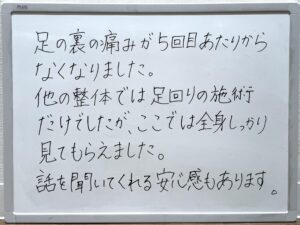 足の裏の痛みが5回目あたりから
なくなりました。
他の整体では足回りの施術
だけでしたが、ここでは全身しっかり
見てもらえました。
話を聞いてくれる安心感もあります。